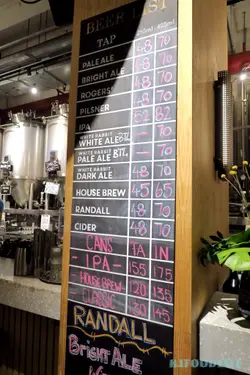 BEER LIST
TAP
PALE ALE 48 70
BRIGHT ALE 48 70
ROGERS 48 70
PILSNER 48 70
IPA 52 82
WHITE RABBIT
WHITE ALE BTL 62
WHITE RABBIT
PALE ALE BTL 62
WHITE RABBIT
DARK ALE 48 70
HOUSE BREW 45 65
RANDALL 48 70
CIDER 48 70
CANS TA IN
- IPA - 155 175
HOUSE BREW 120 135
CLASSIC 30 45
RANDALL
BRIGHT ALE